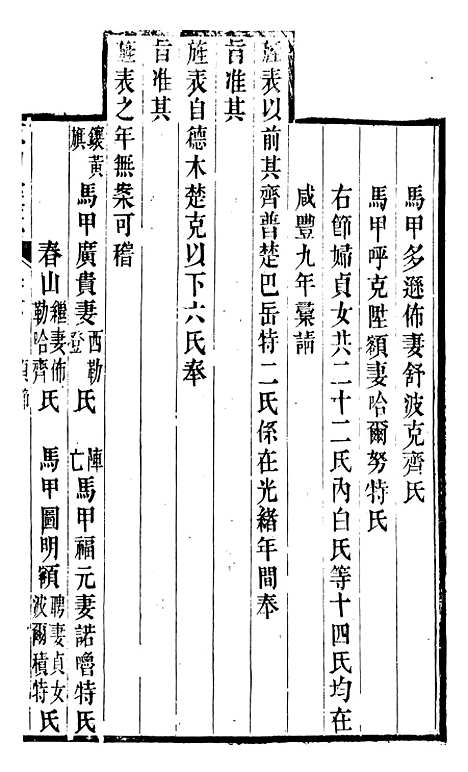 馬甲多遜佈妻舒波克齊氏
馬甲呼克陞額妻哈爾努特氏
右節婦貞女共二十二氏內白氏等十四氏均在
咸豐九年彙請
旌表以前其齊普楚巴岳特二氏係在光緒年間奉
旨准其
旌表自德木楚克以下六氏奉
旨准其
旌表之年無案可稽
鑲黃旗 馬甲廣貴妻西勒登氏 陣亡馬甲福元妻諾嚕特氏
春山繼妻佈勒哈齊氏 馬甲圖明額聘妻貞女波爾積特氏